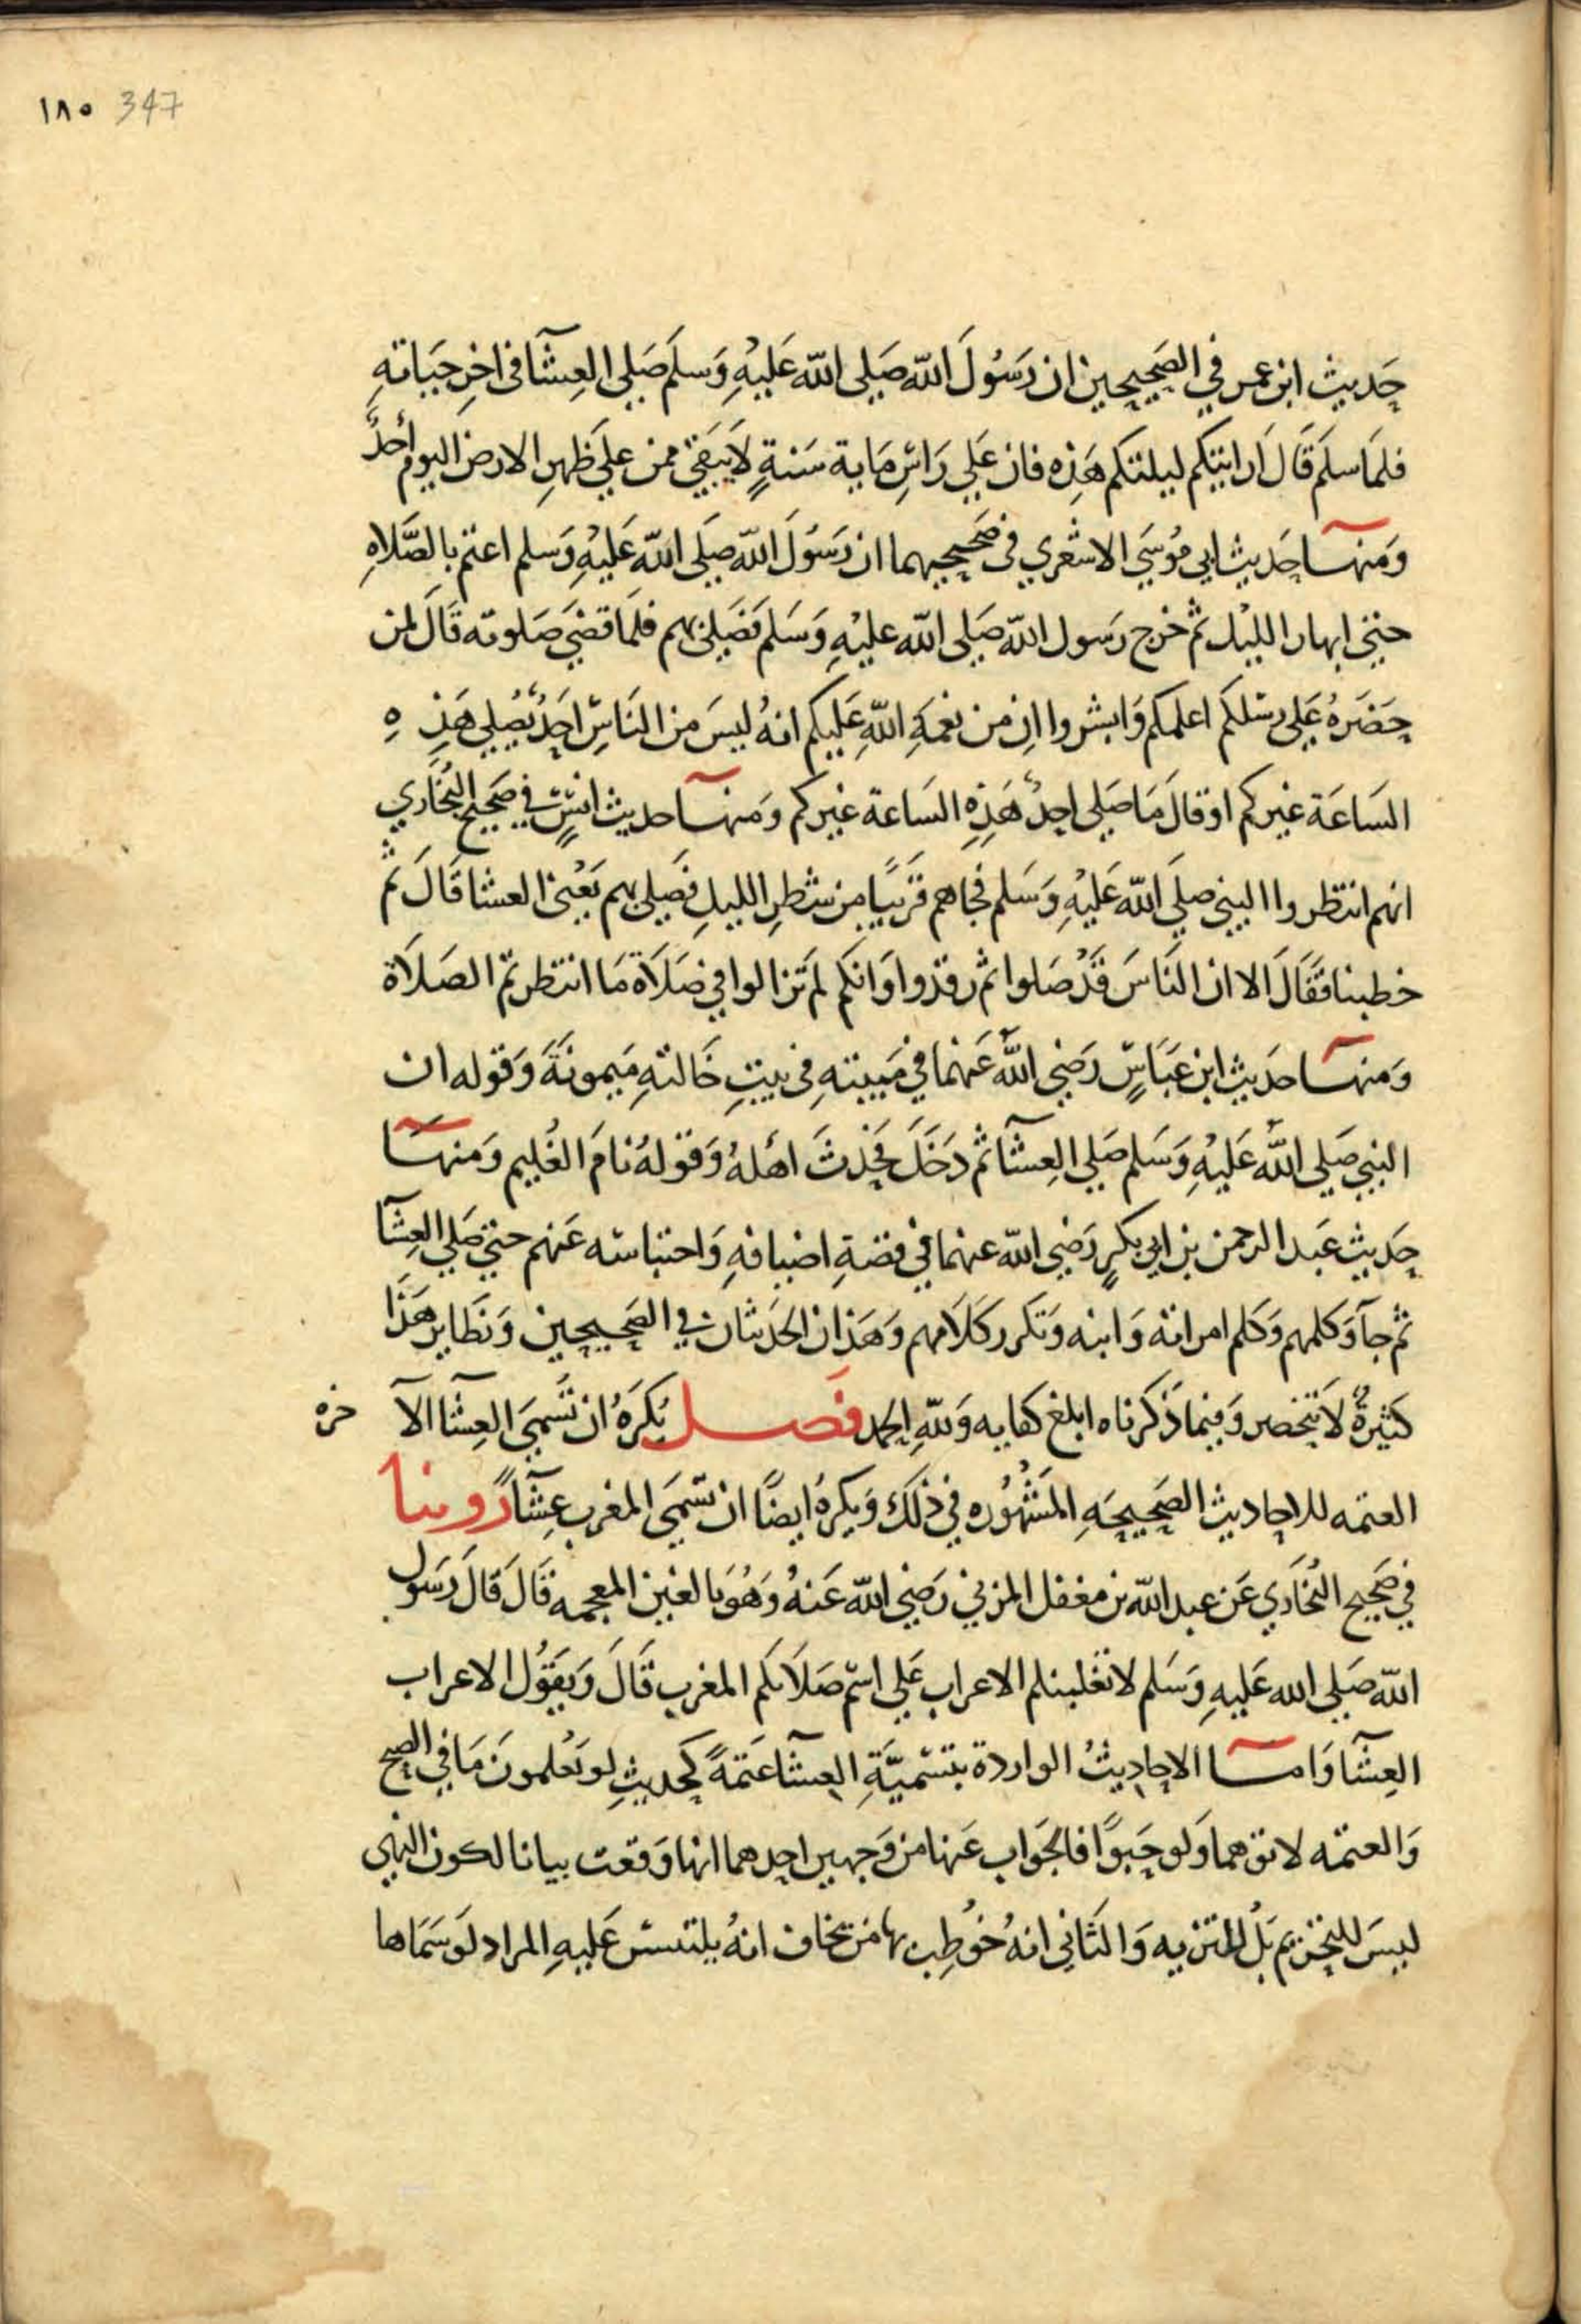 ١٨٥ 347
حَديث ابن عمر في الصَحيحين ان رَسُولَ الله صَلى الله عَليْهِ وَسلَم صَلى العِشآ في اخِرِ حَيَاتهِ
فلمَا سلَم قَالَ اَرايتكم ليلتكم هَذِه فان عَلي رَاسِ مَاية سَنةٍ لاَ يَبقَى ممن عَلي ظَهرِ الارض اليوم أحدٌ
وَمنهـا حَديث ابي مُوسَي الاشعري في صَحيحيهما ان رَسُولَ الله صلَى الله عَليْهِ وَسلم اعتم بالصَّلاةِ
حتي ابهار الليْل ثم خرج رَسول الله صَلى الله عليْهِ وَسَلم فَصَلى بهم فلمَا قضَى صَلوته قَالَ لمن
حَضَرهُ عَلى رسْلكم اعلمكم وَابشروا اِن من نِعمَةِ اللهِ عَليكم انهُ ليسَ من النَاسِ احَدٌ يُصَلي هَذِ هِ
السَاعَة غيركم او قالَ مَا صَلى احدٌ هَذِهِ السَاعة غيركم وَمنهـا حديث انسٍ في صَحيح البُخَاري
انهم انتظروا النبي صلَى الله عَليْهِ وَسَلم فجاهم قَريبًا من شطرِ الليلِ فصَلى بهم يَعْني العشا قَالَ ثم
خطبنا فقَالَ الا ان النَاسَ قَدْ صَلوا ثم رقدوا وَانكم لم تزالوا في صَلاَة مَا انتظرتم الصَلاَة
وَمنهـا حَديث ابن عَبَاسٍ رَضِي اللهُ عَنهمَا في مَبيتهِ في بيتِ خَالتهِ مَيمونَةَ وَقوله ان
النبي صَلى اللهُ عَليْهِ وَسَلم صَلى العِشآ ثم دَخَلَ فحَدثَ اهْلهُ وَقولهُ نامَ الغُليم وَمنهـا
حَديث عَبد الرحمن بن ابي بكرٍ رَضِي الله عنهما في قصَةِ اضيافهِ وَاحتباسه عَنهم حتي صَلى العِشآ
ثم جآ وَكلمهم وَكلم امراته وَابنه وَتكَرر كلاَمهم وَهَذان الحَديثان في الصَحيحين وَنظَاير هَذَا
كثيرةٌ لاَ تنحَصر وَفيمَا ذَكرناه ابلغ كفايه وَللهِ الحمد فصـــل يُكرَهُ ان تسَمى العِشا الآ خره
العتمه للاحاديث الصَحيحَةِ المَشهُوره في ذلكَ وَيكرهُ ايضًا ان تسَمى المغرب عِشآ رُوينا
في صَحيح البُخَاري عَن عبد الله بن مغفل المزني رَضِي الله عَنهُ وَهُوَ بالغين المعجمه قَالَ قَالَ رَسَول
الله صَلى الله عَليهِ وَسَلم لا تغلبنكم الاعراب عَلي اسْم صَلاَتكم المغرب قَالَ وَيَقوُل الاعراب
العِشآ وَامــا الاحاديثُ الواردة بتسْميَّةِ العِشآ عَتمَةً كحديثِ لو يَعْلمونَ مَا في الصبح
وَالعتمَه لاتوهما وَلو حَبوًا فالجَواب عَنها من وَجهين احدهما انها وَقعت بيانا لكون النهي
ليسَ للتحَريم بَلْ للتنزيه وَالثَاني انهُ خُوْطِب بها مَن يخاف انهُ يلتبسْ عَليهِ المراد لَو سَمَاها